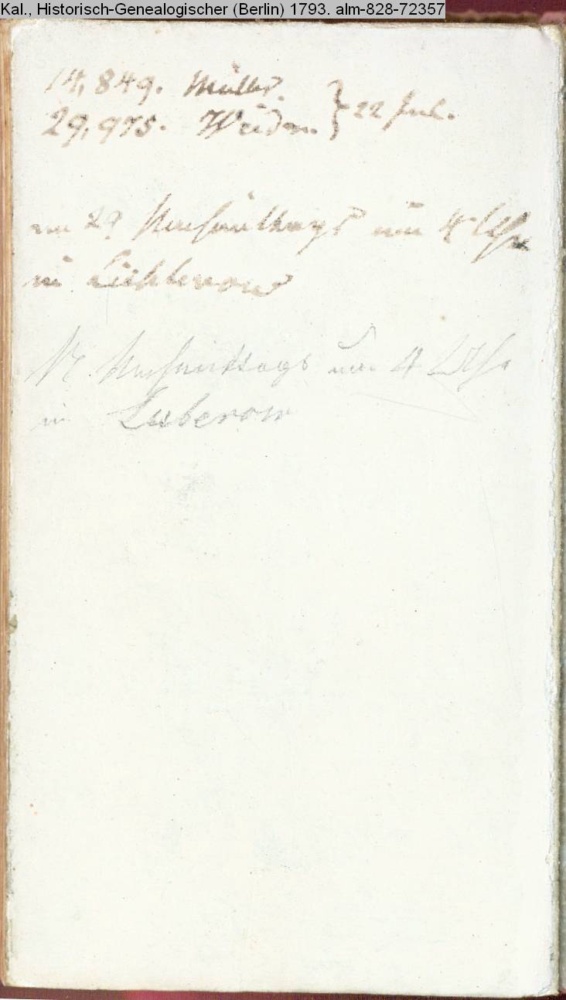 Kal., Historisch-Genealogischer (Berlin) 1793. alm-828-72357
14,849. Müller. } 22 Jul.
29,975.
29 Nachmittags um 4 Uhr
in
Nachmittags um 4 Uhr
in Luberow